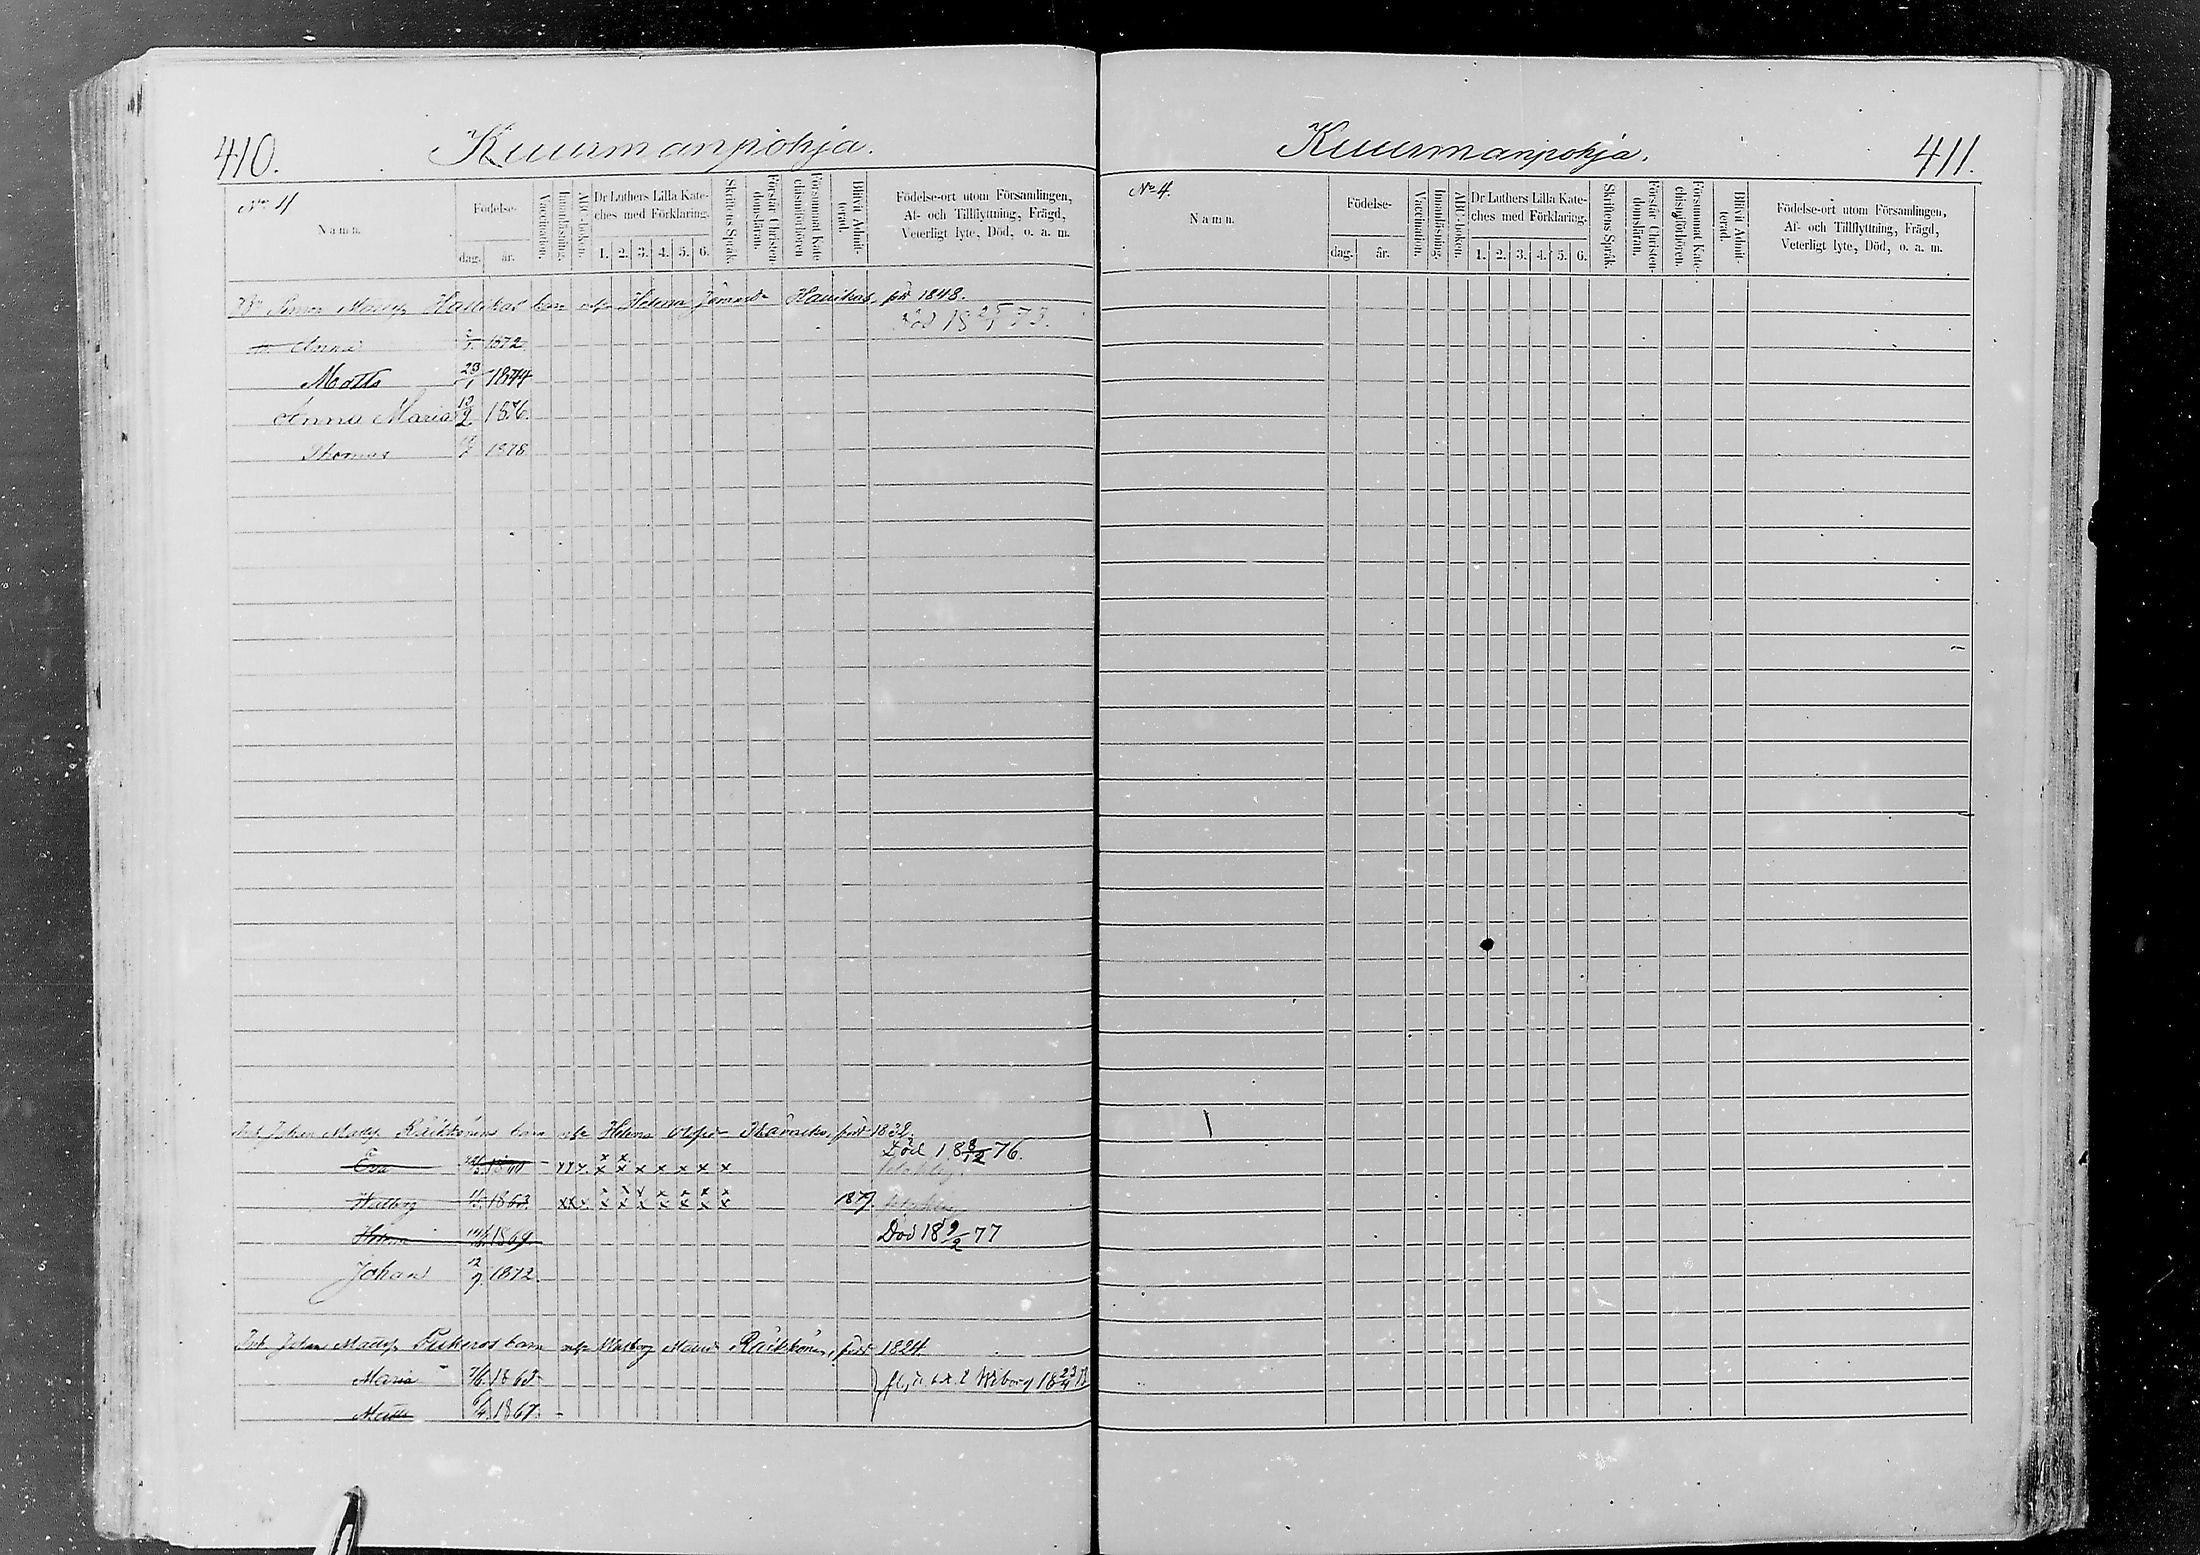 410.
Kuurmanpohja.
No 4
Namn.
Födelse-
dag.
år.
Vaccination.
Innanläsning.
ABC-boken.
Dr Luthers Lilla Kate-
ches med Förklaring.
1. 2. 3. 4. 5. 6.
Skriftens Språk.
Förstår Christen-
domsläran.
Försummat Kate-
chismiförhören
Blivit Admit-
terad.
Födelse-ort utom Församlingen,
Af- och Tillflyttning, Frägd,
Veterligt lyte, Död, o. a. m.
Matts Haikas barn Helena Haikas, född 1848.
Anna 1872.
Död 18 25/1 73.
Matts 23/1 1874
Anna Maria 13/2 1876.
Thomas 1878
Johan Matts Räikkönens barn Helena född 1832.
Eva x x x x x x x Död 18 8/12 76.
Walborg 1863. x x x x x x x 1879.
Helena 1869. Död 18 9/2 77
Johan 12/9 1872.
Johan Matts barn Walborg Räikkönen, född 1824.
Maria 1863. Wiborg
Matts 6/4 1867.
Kuurmanpohja.
411.
No 4.
Namn.
Födelse-
dag.
år.
Vaccination.
Innanläsning.
ABC-boken.
Dr Luthers Lilla Kate-
ches med Förklaring.
1. 2. 3. 4. 5. 6.
Skriftens Språk.
Förstår Christen-
domsläran.
Försummat Kate-
chismiförhören.
Blivit Admit-
terad.
Födelse-ort utom Församlingen,
Af- och Tillflyttning, Frägd,
Veterligt lyte, Död, o. a. m.